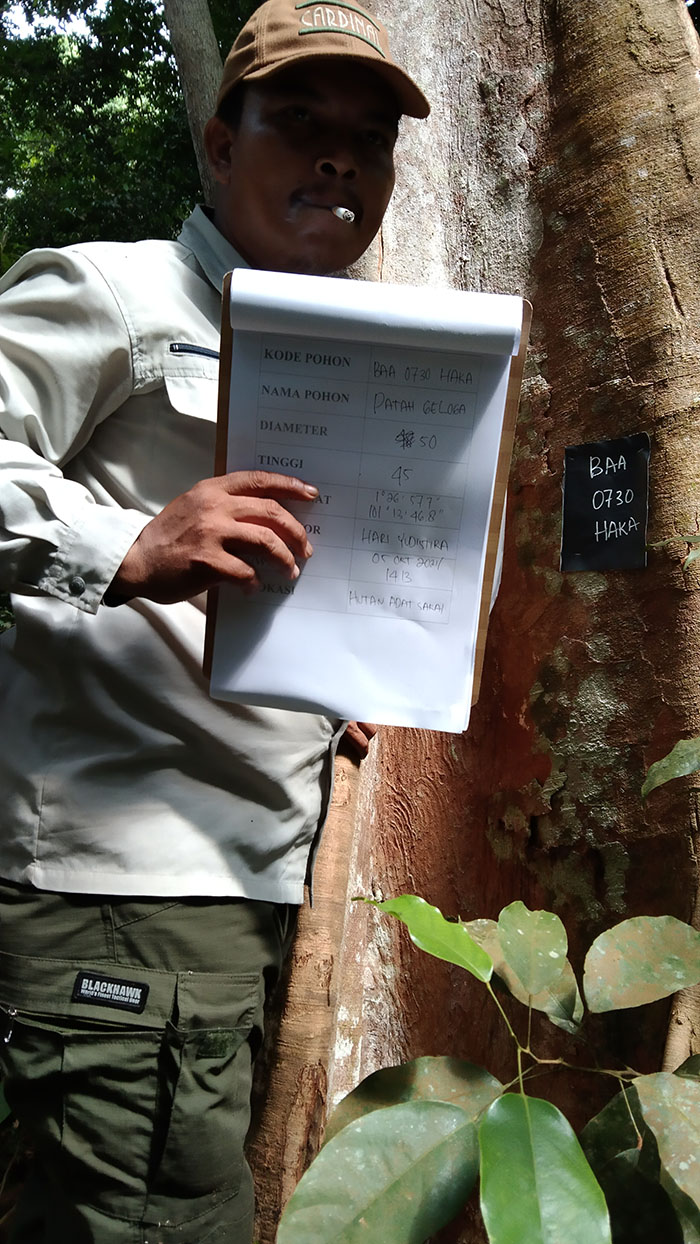 CARDINAL
KODE POHON BAA 0730 HAKA
NAMA POHON PATAH GELOGA
DIAMETER 50
TINGGI 45
AT 1° 26' 57.7"
101° 13' 46.8"
OR HARI YUDISTIRA
05 OKT 2021/
1413
OKASI HUTAN ADAT SAKAI
BAA
0730
HAKA
BLACKHAWK
World's Finest Tactical Gear